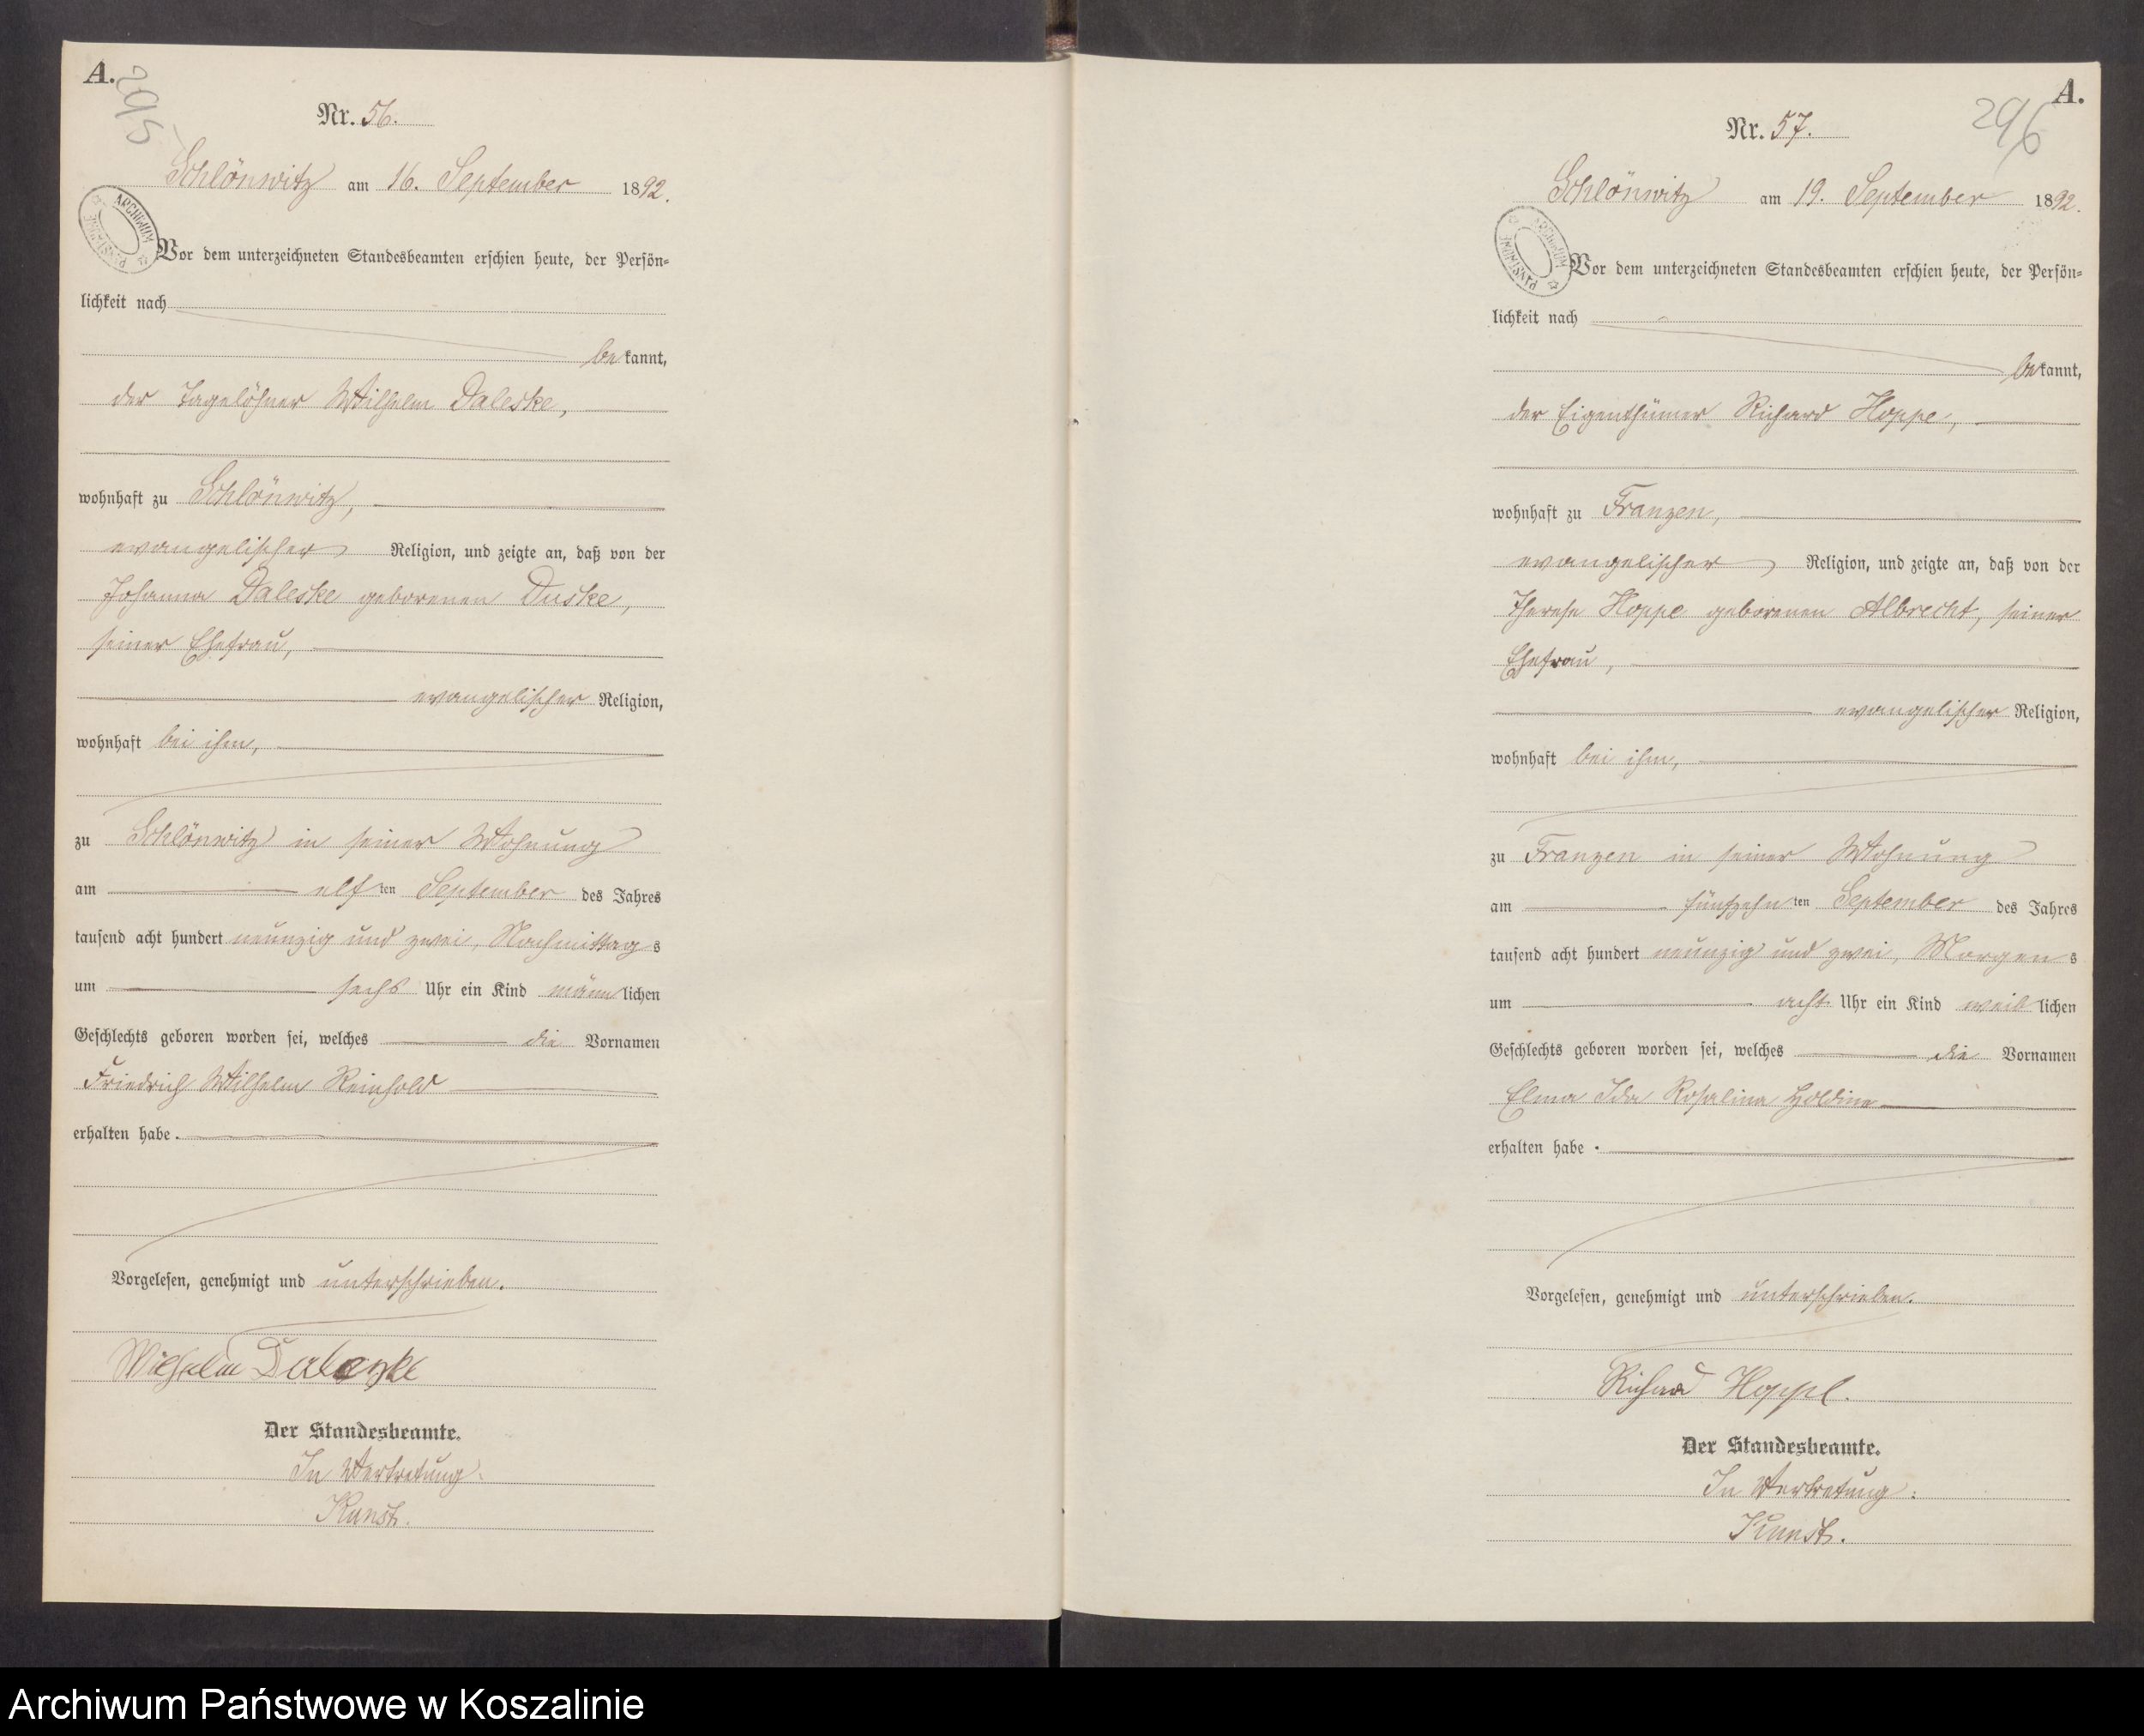 A.
295
Nr. 56.
Schlönwitz am 16. September 1892.
ARCHIWUM PAŃSTWOWE
Vor dem unterzeichneten Standesbeamten erschien heute, der Persön=
lichkeit nach
bekannt,
der Tagelöhner Wilhelm Daleske,
wohnhaft zu Schlönwitz,
evangelischer Religion, und zeigte an, daß von der
Johanna Daleske geborenen Duske,
seiner Ehefrau,
evangelischer Religion,
wohnhaft bei ihm,
zu Schlönwitz in seiner Wohnung
am elften September des Jahres
tausend acht hundert neunzig und zwei, Nachmittags
um sechs Uhr ein Kind männlichen
Geschlechts geboren worden sei, welches die Vornamen
Friedrich Wilhelm Reinhold
erhalten habe.
Vorgelesen, genehmigt und unterschrieben.
Wilhelm Daleske
Der Standesbeamte.
In Vertretung:
Kunst.
A.
296
Nr. 57.
Schlönwitz am 19. September 1892.
ARCHIWUM PAŃSTWOWE
Vor dem unterzeichneten Standesbeamten erschien heute, der Persön=
lichkeit nach
bekannt,
der Eigenthümer Richard Hoppe,
wohnhaft zu Franzen,
evangelischer Religion, und zeigte an, daß von der
Therese Hoppe geborenen Albrecht, seiner
Ehefrau,
evangelischer Religion,
wohnhaft bei ihm,
zu Franzen in seiner Wohnung
am fünfzehnten September des Jahres
tausend acht hundert neunzig und zwei, Morgens
um acht Uhr ein Kind weiblichen
Geschlechts geboren worden sei, welches die Vornamen
Elma Ida Rosalina Holdine
erhalten habe.
Vorgelesen, genehmigt und unterschrieben.
Richard Hoppe.
Der Standesbeamte.
In Vertretung:
Kunst.
Archiwum Państwowe w Koszalinie